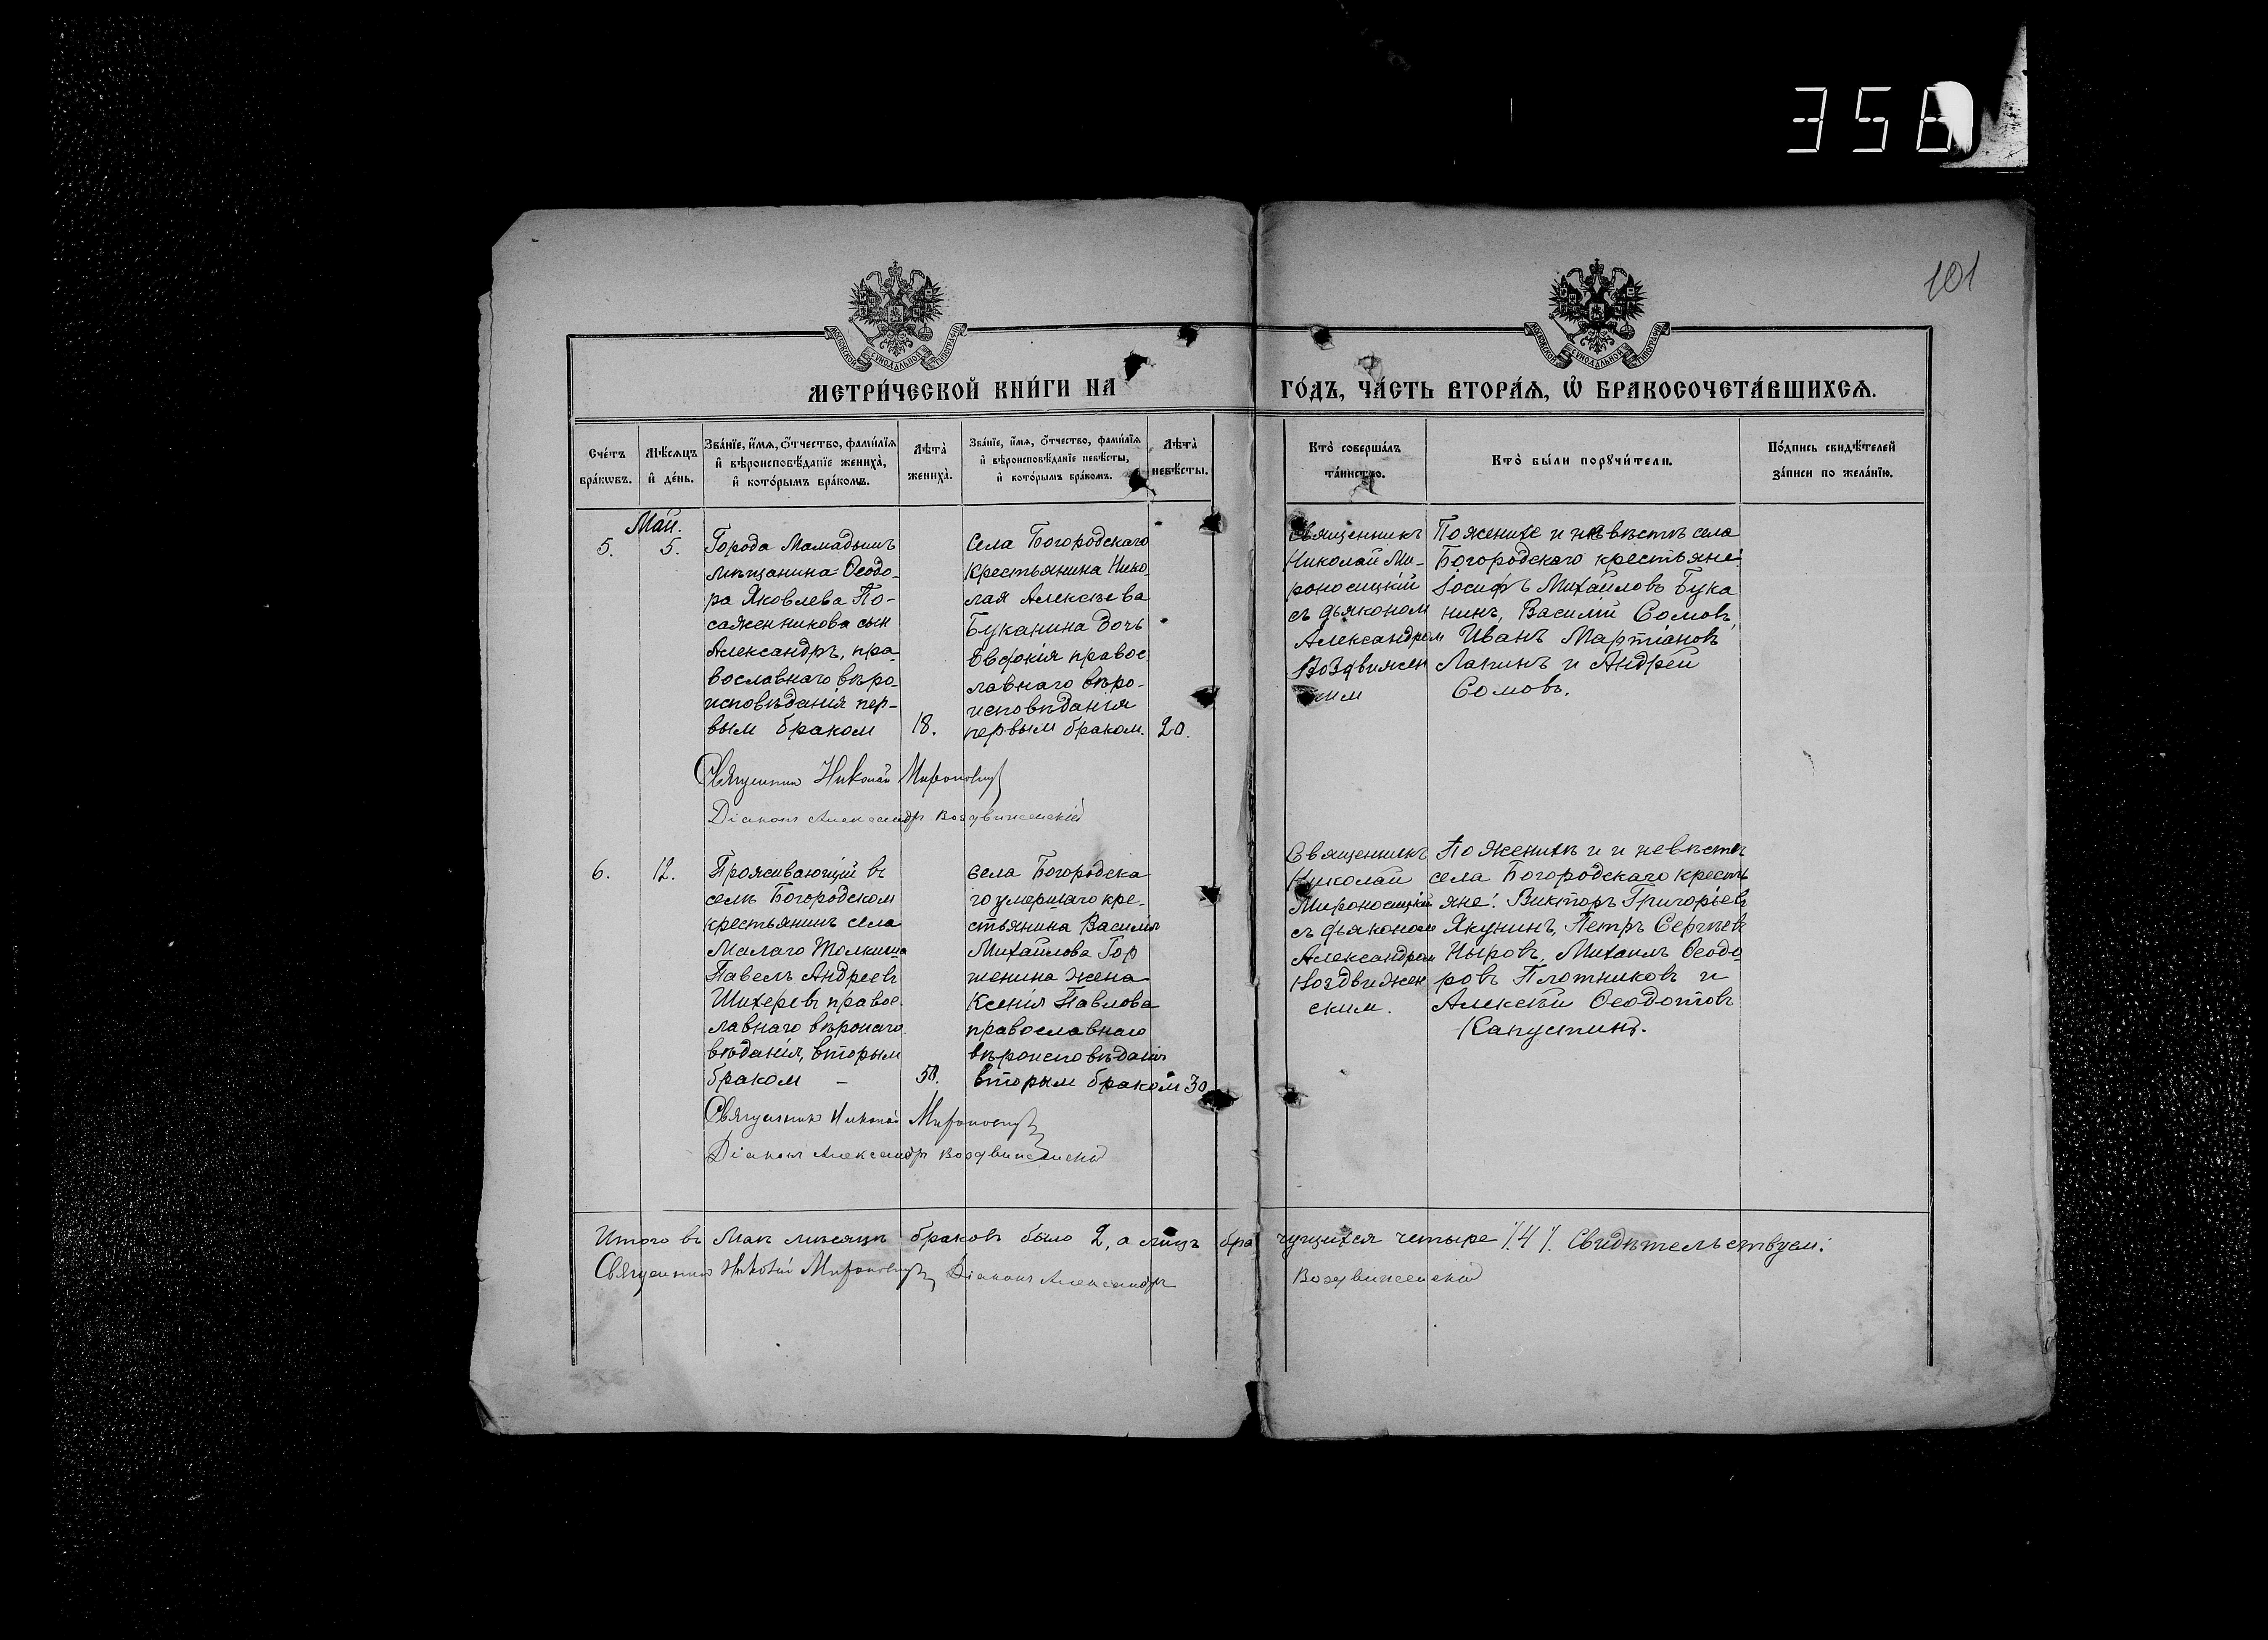 358
101
МЕТРИ́ЧЕСКОЙ КНИ́ГИ НА
ГО́ДЪ, ЧА́СТЬ ВТОРА́Я, Ѡ БРАКОСОЧЕТА́ВШИХСЯ.
Сче́тъ
бра́кѡвъ.
Мѣ́сяцъ
и҆ де́нь.
Зва́нїе, и҆́мя, ѻ҆́тчество, фами́лїя
и҆ вѣроисповѣ́данїе жениха̀,
и҆ кото́рымъ бра́комъ.
Лѣта̀
жениха̀.
Зва́нїе, и҆́мя, ѻ҆́тчество, фами́лїя
и҆ вѣроисповѣ́данїе невѣ́сты,
и҆ кото́рымъ бра́комъ.
Лѣта̀
невѣ́сты.
Кто̀ соверша́лъ
та́инство.
Кто̀ бы́ли порꙋчи́тели.
По́дпись свидѣ́телей
за́писи по жела́нїю.
Май.
5.
5.
Города Мамадышъ
мѣщанина Ѳеодо-
ра Яковлева По-
саженникова сын
Александръ, пра
вославнаго вѣро-
исповѣданія пер-
вым браком
18.
Села Богородскаго
крестьянина Нико-
лая Алексѣева
Буканина дочь
Евдокія правос
лавнаго вѣро-
исповѣданія
первым браком.
20.
Священникъ
Николай Ми-
роносицкій
съ дьяконом
Александром
Воздвижен
ским
По женихе и невѣстѣ села
Богородскаго крестьяне:
Іосифъ Михайловъ Бука
нинъ, Василій Сомовъ,
Иванъ Мартіановъ
Лапинъ и Андрей
Сомовъ.
Священник Николай Мироносицкій
Діаконъ Александръ Воздвиженскій
6.
12.
Проживающій въ
селѣ Богородском
крестьянинъ села
Малаго Толкиша
Павелъ Андреевъ
Шихерев правос
лавнаго вѣроиспо
вѣданія, вторым
браком —
50.
села Богородска
го умершаго кре-
стьянина Василія
Михайлова Гор
шенина жена
Ксенія Павлова
православнаго
вѣроисповѣданія
вторым браком
30
Священникъ
Николай
Мироносицкій
съ дьяконом
Александром
Воздвижен
ским.
По женихѣ и и невѣстѣ
села Богородскаго кресть
яне: Викторъ Григорьевъ
Якунинъ, Петръ Сергѣев
Ныровъ, Михаилъ Ѳеодо
ровъ Плотниковъ и
Алексѣй Ѳеодотовъ
Капустинъ.
Священник Николай Мироносицкій
Діаконъ Александръ Воздвиженскій
Итого въ Маѣ мѣсяцѣ браковъ было 2, а лицъ бра
чущихся четыре /.4/. Свидѣтельствуем:
Священник Николай Мироносицкій Діаконъ Александръ
Воздвиженскій